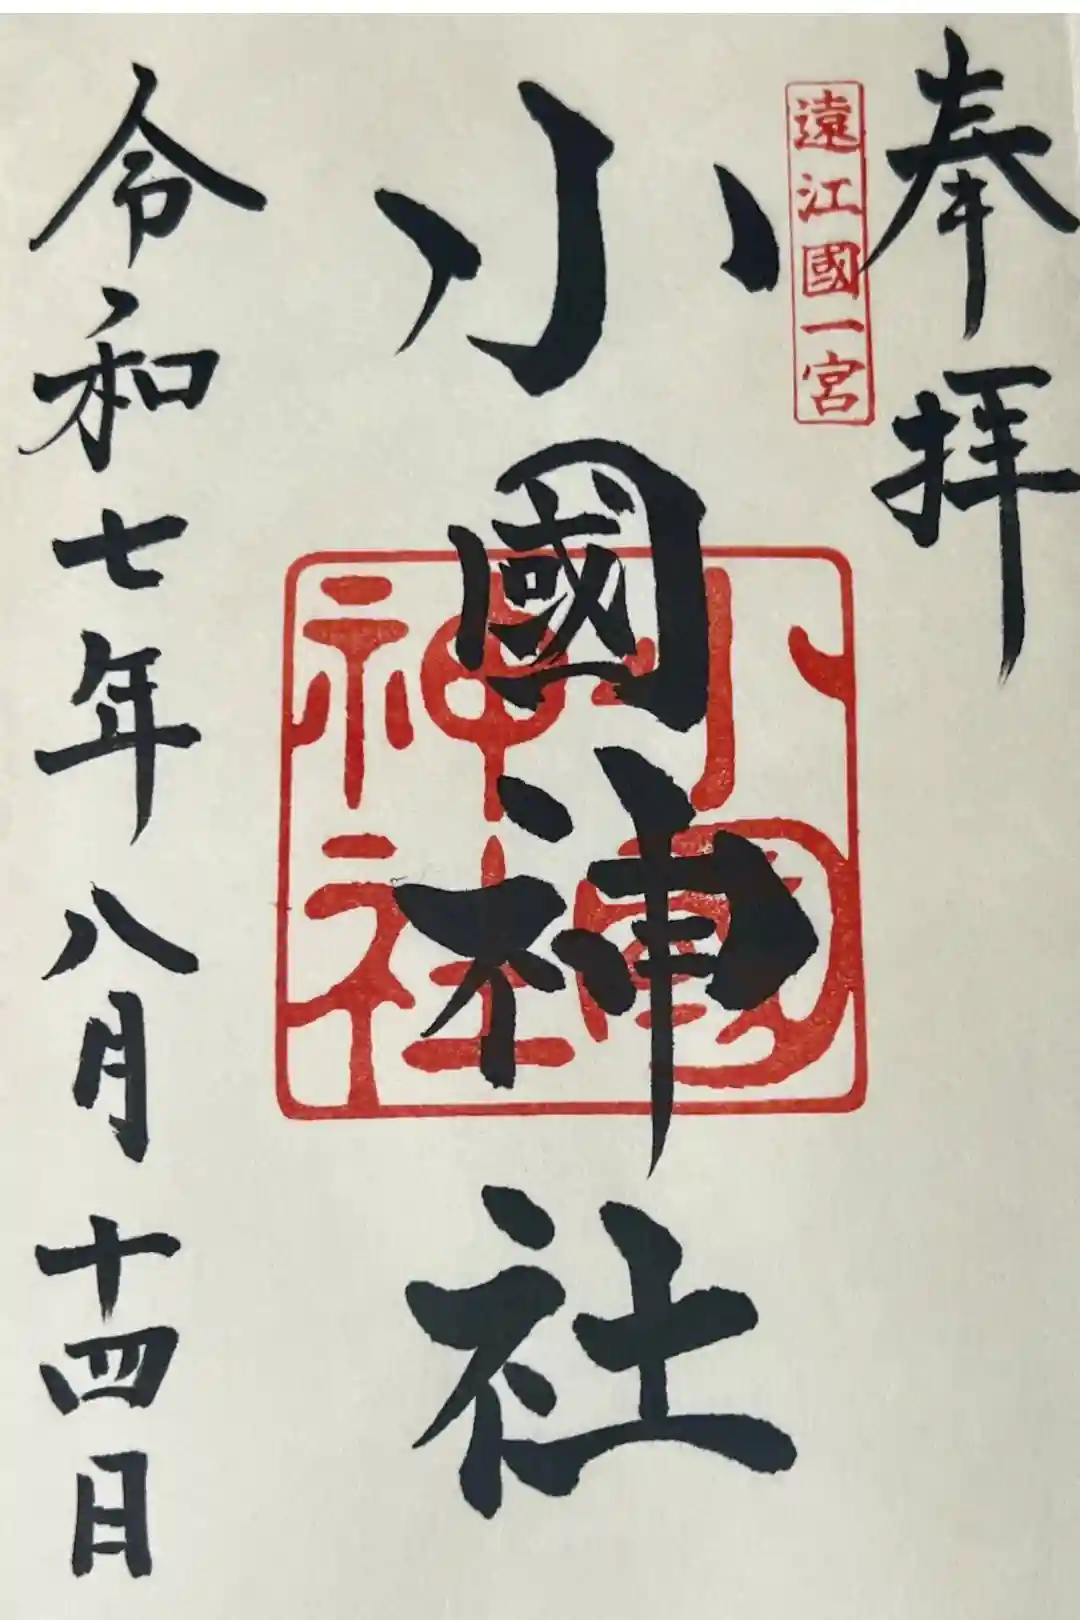 奉拝
遠江國一宮
小國神社
小國神社
令和七年八月十四日